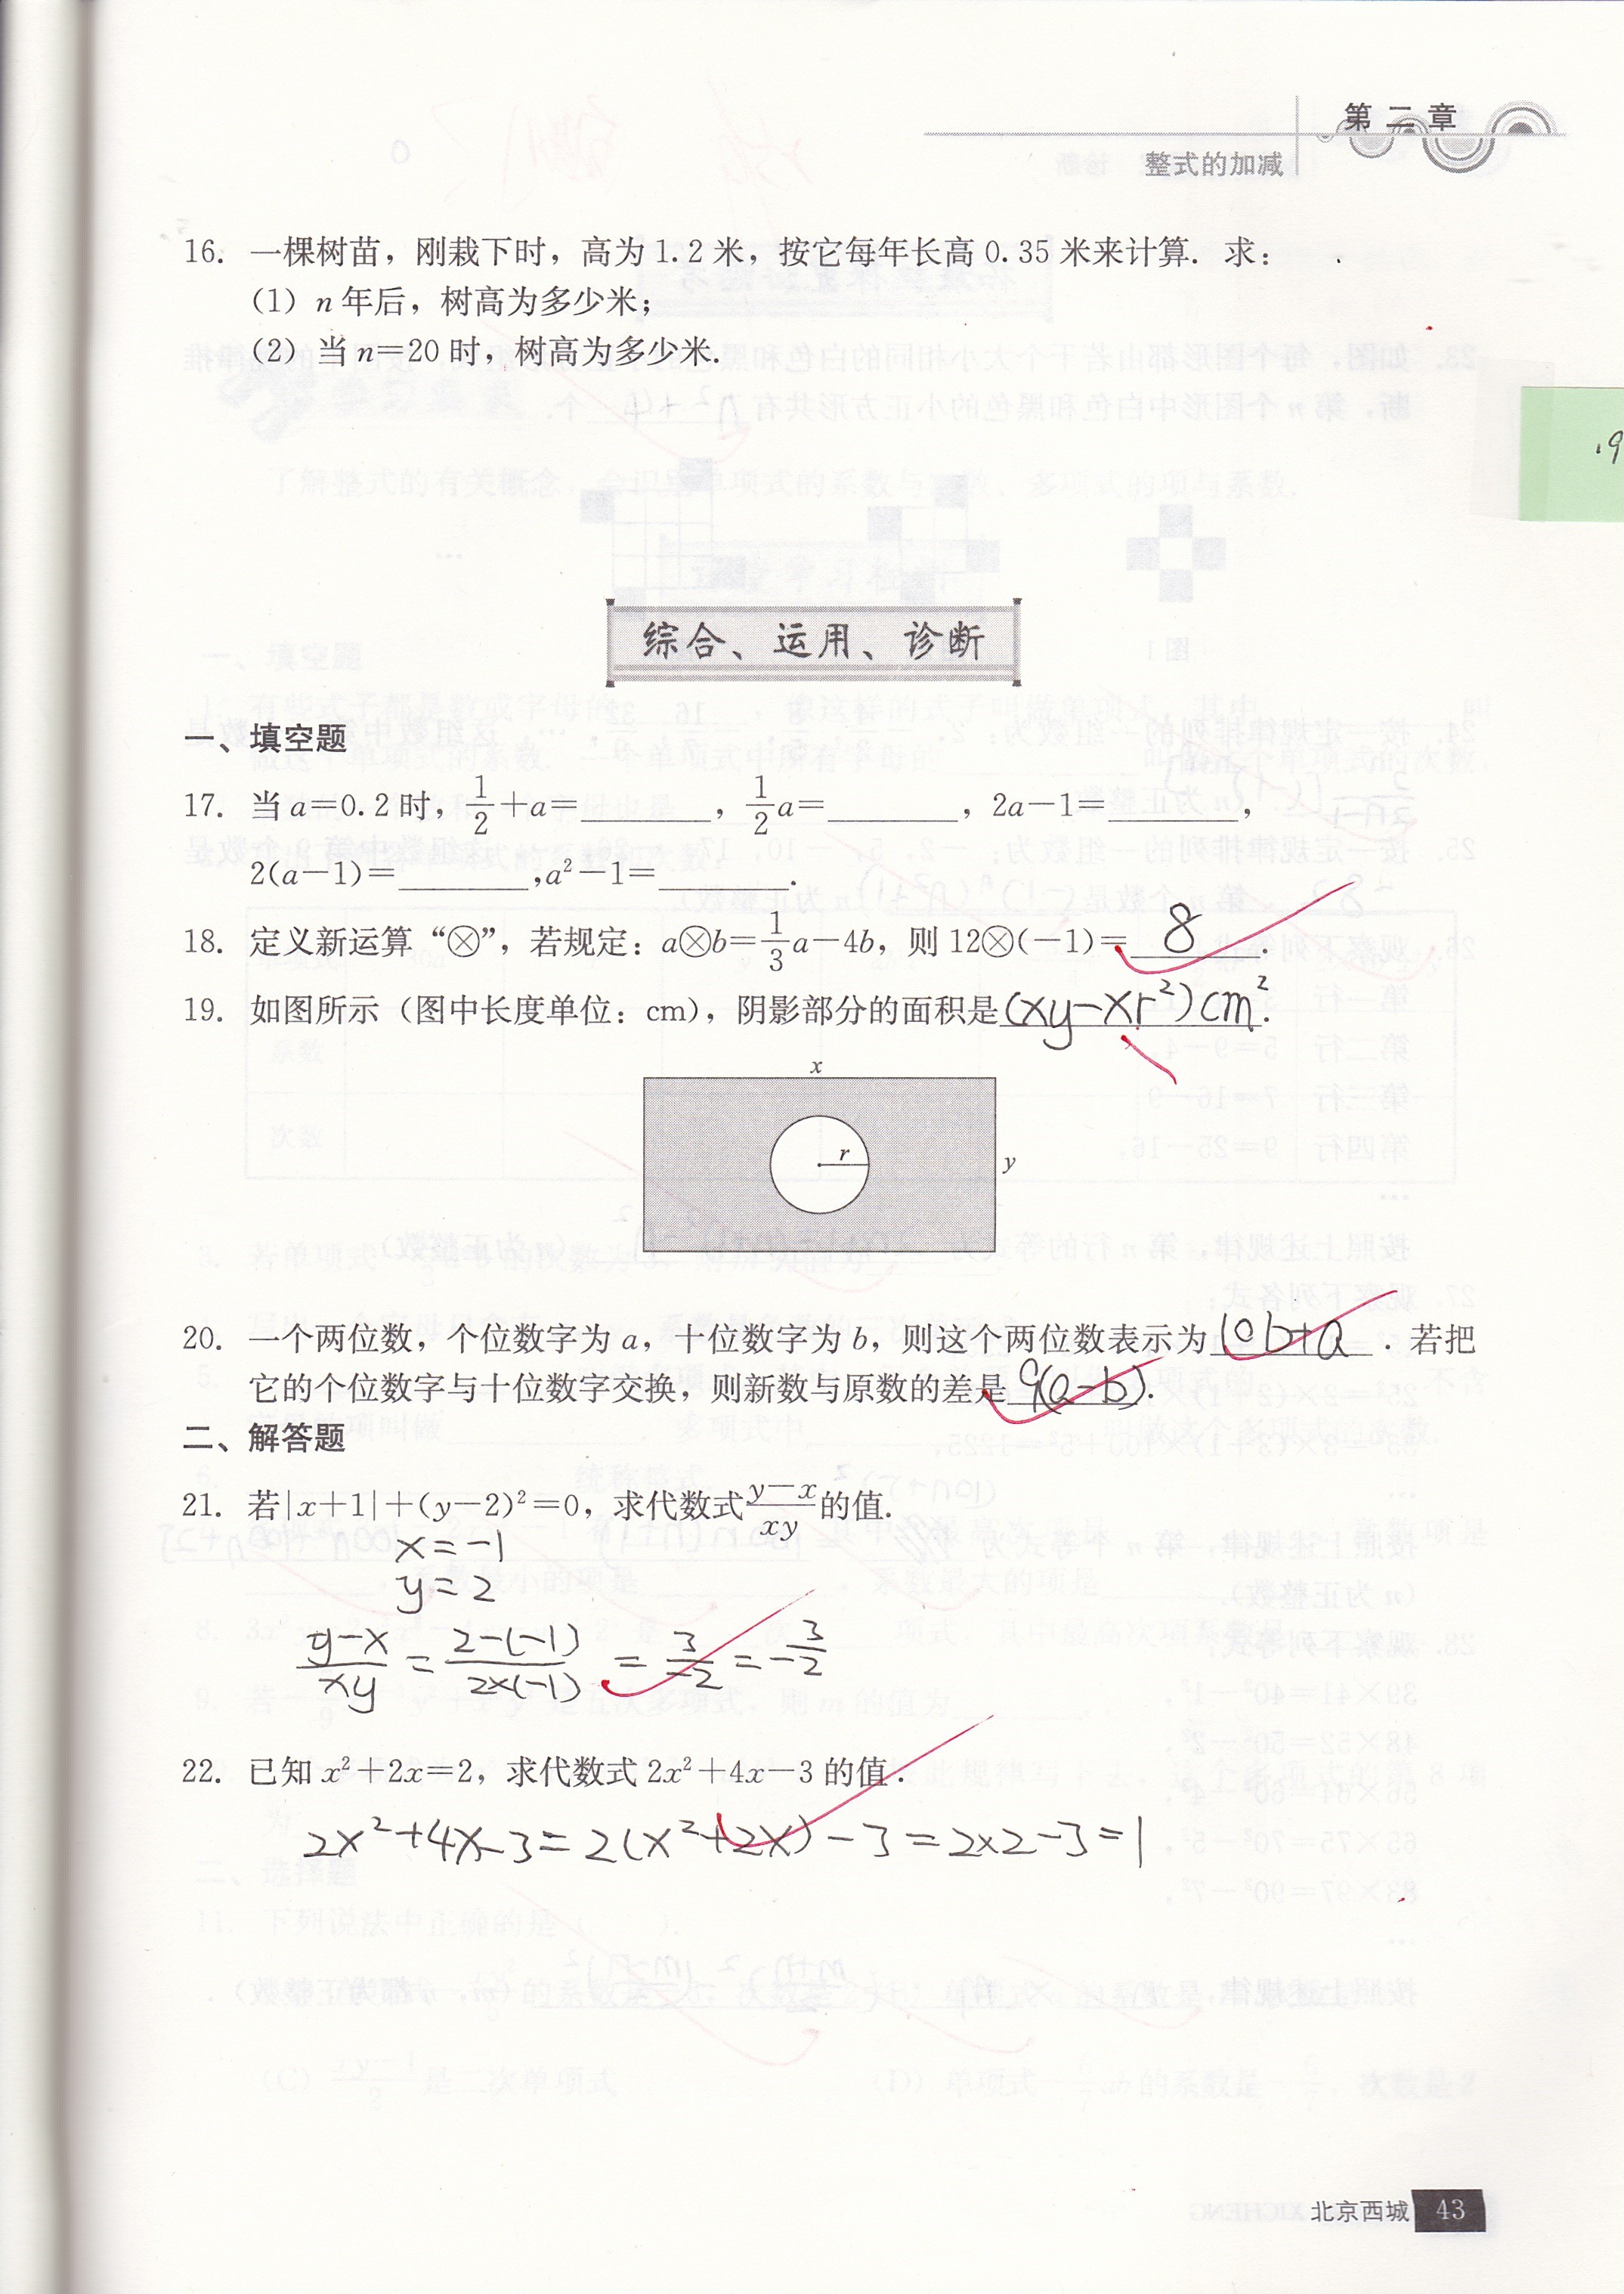 第二章
整式的加减
16. 一棵树苗，刚栽下时，高为1.2米，按它每年长高0.35米来计算．求：
(1) n年后，树高为多少米；
(2) 当n=20时，树高为多少米．
综合、运用、诊断
一、填空题
17. 当a=0.2时，1/2+a=________，1/2a=________，2a-1=________，
2(a-1)=________,a²-1=________.
18. 定义新运算“⊗”，若规定：a⊗b=1/3a-4b，则12⊗(-1)= 8 .
19. 如图所示（图中长度单位：cm），阴影部分的面积是(xy-xr²)cm².
x
r
y
20. 一个两位数，个位数字为a，十位数字为b，则这个两位数表示为10b+a．若把
它的个位数字与十位数字交换，则新数与原数的差是9(a-b).
二、解答题
21. 若|x+1|+(y-2)²=0，求代数式(y-x)/xy的值．
x=-1
y=2
(y-x)/xy = (2-(-1))/(2×(-1)) = 3/-2 = -3/2
22. 已知x²+2x=2，求代数式2x²+4x-3的值．
2x²+4x-3=2(x²+2x)-3=2×2-3=1
北京西城 43